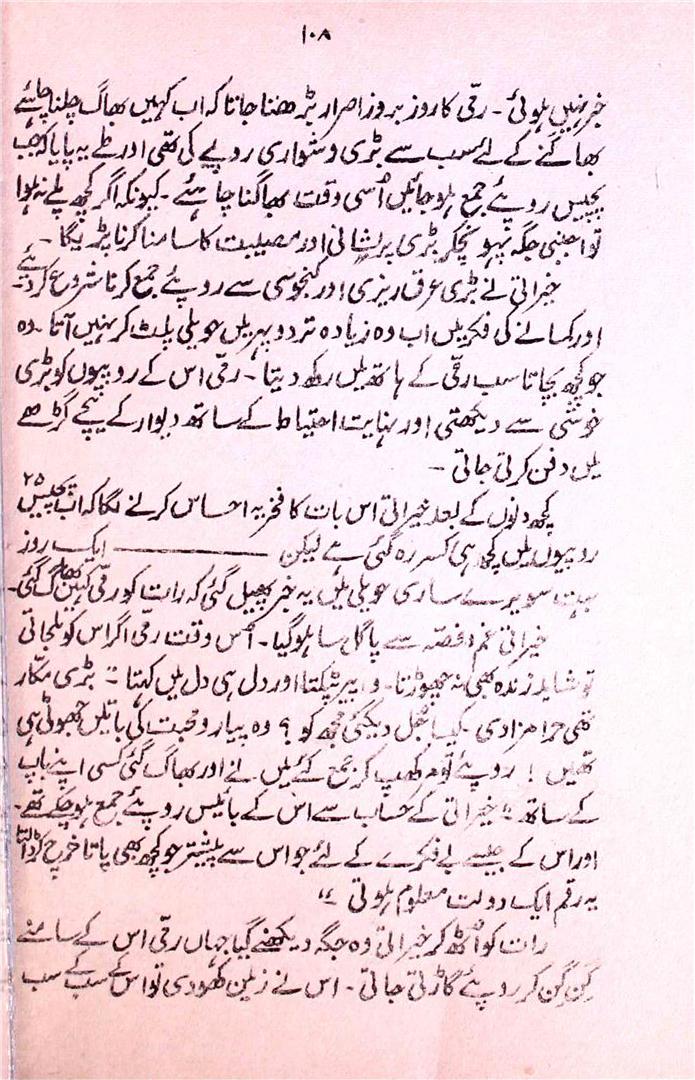 ۱۰۸
خبر نہیں ہوئی ۔ رقی کا روز بروز اصرار بڑھتا جاتا کہ اب کہیں بھاگ چلنا چاہئے
بھاگنے کے لئے سب سے بڑی دشواری روپے کی تھی اور طے یہ پایا کہ جب
پچیس روپئے جمع ہو جائیں اُسی وقت بھاگنا چاہئے ۔ کیونکہ اگر کچھ پلے نہ ہوا
تو اجنبی جگہ پہونچکر بڑی پریشانی اور مصیبت کا سامنا کرنا پڑیگا ۔
خیراتی نے بڑی عرق ریزی اور کنجوسی سے روپئے جمع کرنا شروع کر دیئے ۔
اور کمانے کی فکر میں اب وہ زیادہ تر دوپہر میں حویلی پلٹ کر نہیں آتا ۔ وہ
جو کچھ بچاتا سب رقی کے ہاتھ میں رکھ دیتا ۔ رقی اس کے روپیوں کو بڑی
خوشی سے دیکھتی اور نہایت احتیاط کے ساتھ دیوار کے نیچے گڑھے
میں دفن کرتی جاتی ۔
کچھ دنوں کے بعد خیراتی اس بات کا فخریہ احساس کرنے لگا کہ اب پچیس ۲۵
روپیوں میں کچھ ہی کسر رہ گئی ہے لیکن ــــــــــــــــ ایک روز
بہت سویرے ساری حویلی میں یہ خبر پھیل گئی کہ رات کو رقی کہیں بھاگ گئی ۔
خیراتی غم و غصّہ سے پاگل سا ہو گیا ۔ اُس وقت رقی اگر اس کو مل جاتی
تو شاید زندہ بھی نہ چھوڑتا ۔ وہ پیر پٹکتا اور دل ہی دل میں کہتا :" بڑی مکّار
تھی حرامزادی ۔ کیسا جُل دیگئی مجھ کو ؟ وہ پیار و محبت کی باتیں جھوٹی ہی
تھیں ! روپئے تو مر کھپ کر جمع کئے میں نے اور بھاگ گئی کسی اپنے باپ
کے ساتھ " خیراتی کے حساب سے اس کے بائیس روپئے جمع ہو چکے تھے ۔
اور اس کے جیسے بے فکرے کے لئے جو اس سے پیشتر جو کچھ بھی پاتا خرچ کر ڈالتا
یہ رقم ایک دولت معلوم ہوتی "
رات کو اُٹھ کر خیراتی وہ جگہ دیکھنے گیا جہاں رقی اس کے سامنے
گن گن کر روپئے گاڑتی جاتی ۔ اس نے زمین کھودی تو اس کے سب کے سب